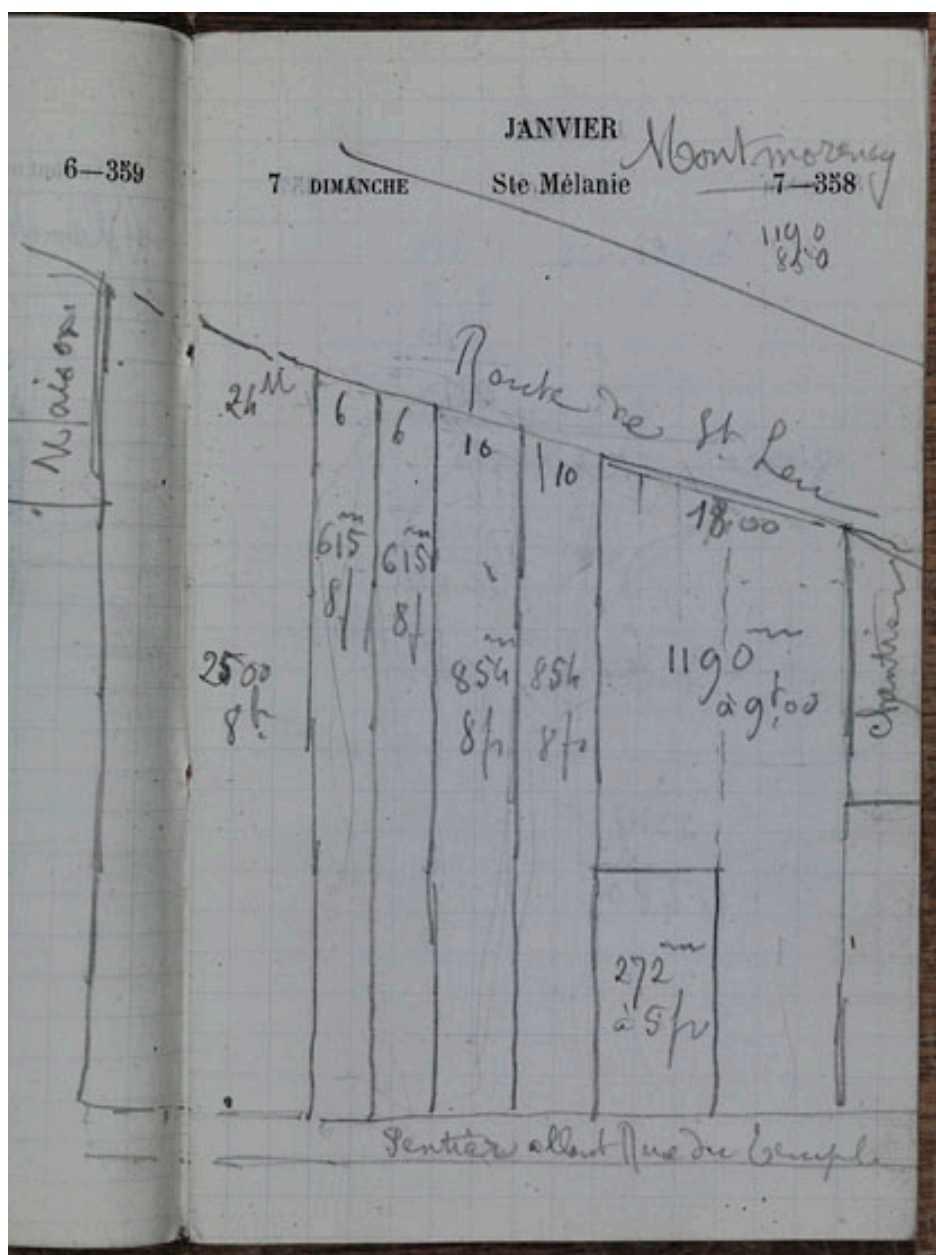 JANVIER
6—359
7 DIMANCHE Ste Mélanie 7—358
Montmorency
1190
850
Maison
Route de St. Leu
24 M
6
6
10
10
18,00
615 m
8f
615 m
8f
2500
8 fr.
854 m
8 fr
854
8 fr
1190 m
à 9f,00
Chantier
272 m
à 5 fr
Sentier allant Rue du Temple